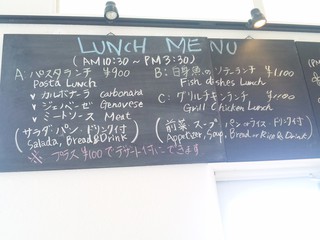 LUNCH MENU
(AM10:30~PM3:30)
A: パスタランチ ¥900
Pasta Lunch
∨ カルボナーラ carbonara
∨ ジェノベーゼ Genovese
∨ ミートソース Meat
(サラダ・パン・ドリンク付
Salada, Bread&Drink)
※ プラス¥100でデザート付にできます
B: 白身魚のソテーランチ ¥1,100
Fish dishes Lunch
C: グリルチキンランチ
Grill Chicken Lunch
(前菜・スープ・パン or ライス・ドリンク付
Appetizer, Soup, Bread or Rice & Drink)